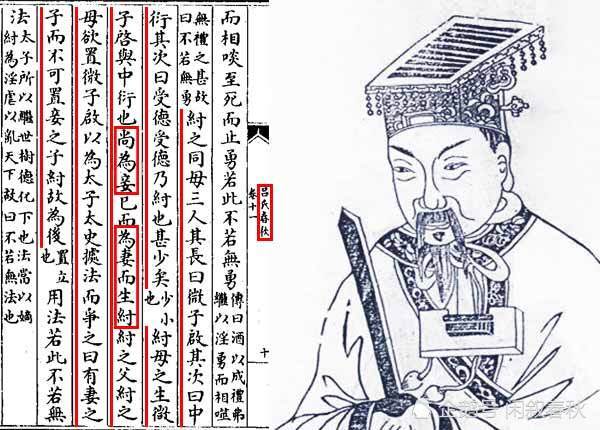 呂氏春秋
卷十一
十
而相啖至死而止勇若此不若無勇
傳曰酒以成禮弗
繼以淫勇而相噬
無禮之甚故
曰不若無勇
紂之同母三人其長曰微子啟其次曰中
衍其次曰受德受德乃紂也甚少矣
少小
也
紂母之生微
子啓與中衍也尚為妾已而為妻而生紂紂之父紂之
母欲置微子啟以為太子太史據法而爭之曰有妻之
子而不可置妾之子紂故為後
置立
也
用法若此不若無
法
太子所以繼世樹德化下也法當以嫡
紂為淫虐以亂天下故曰不若無法也
企鹅号 闲叙春秋